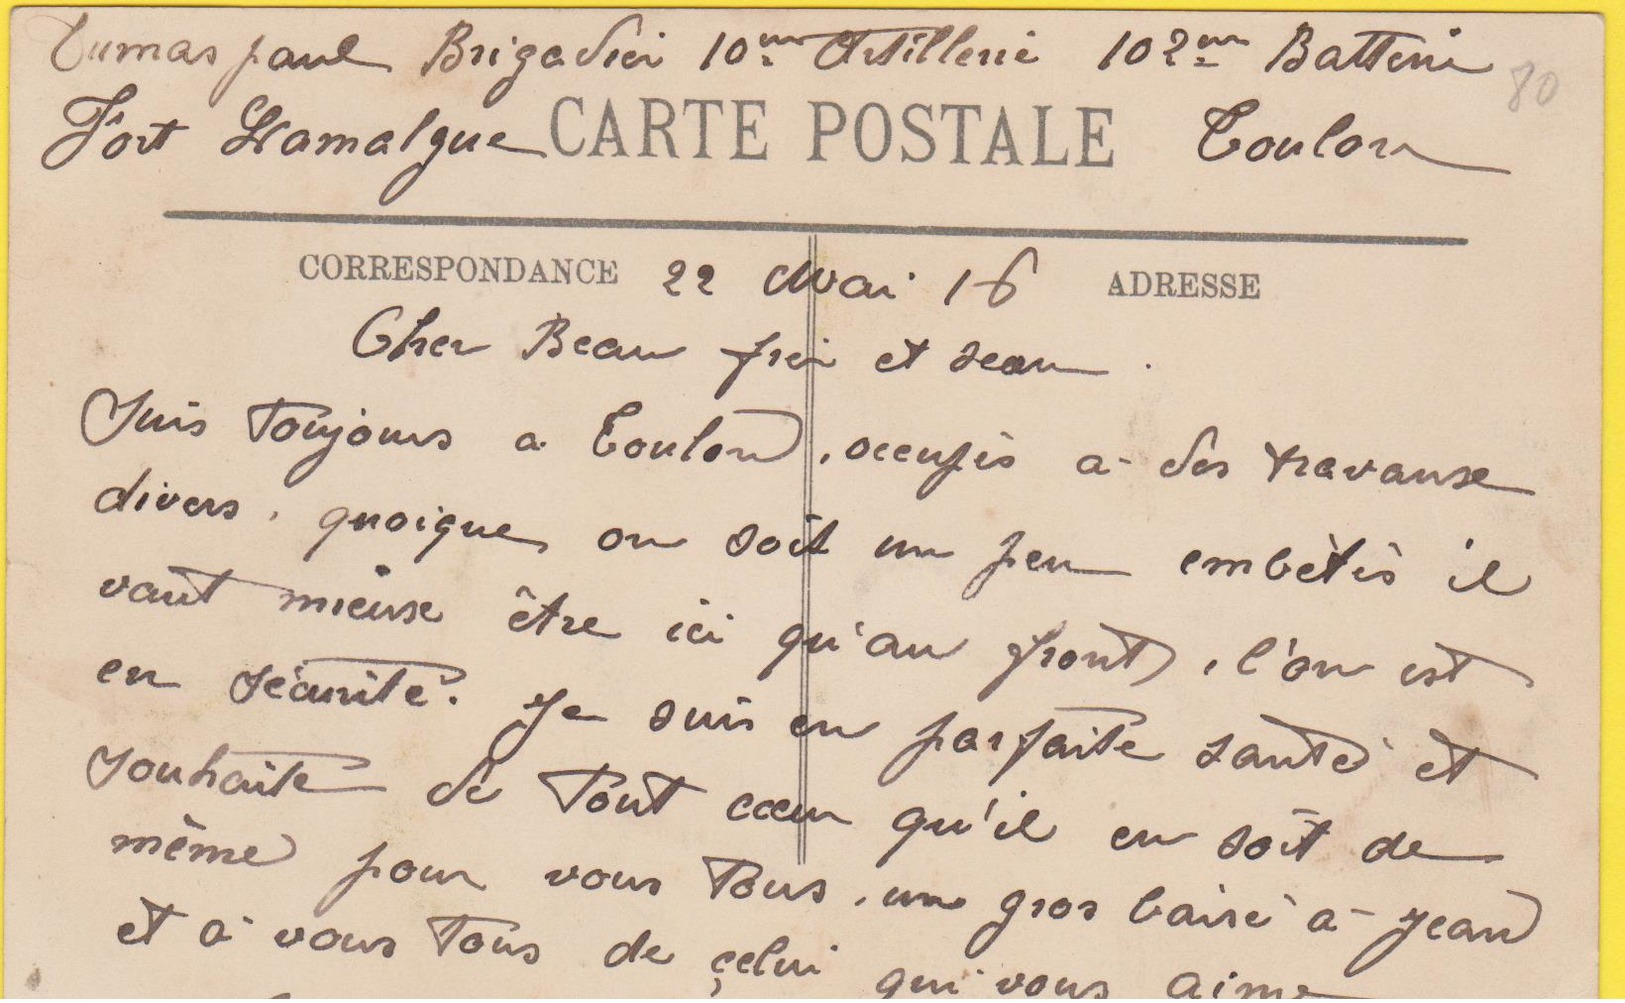 Dumas paul Brigadier 10me Artillerie 102me Batterie
80
Fort Lamalgue CARTE POSTALE Toulon
CORRESPONDANCE 22 Mai 16 ADRESSE
Cher Beau frèr et seaur.
Suis toujours a Toulon, occupés a des travause
divers, quoique on soit un peu embètès il
vaut mieuse être ici qu'au front, l'on est
en sécurité. Je suis en parfaite santé et
souhaite de tout cœur qu'il en soit de
même pour vous tous, un gros baisé à Jean
et à vous tous de çelui qui vous aime